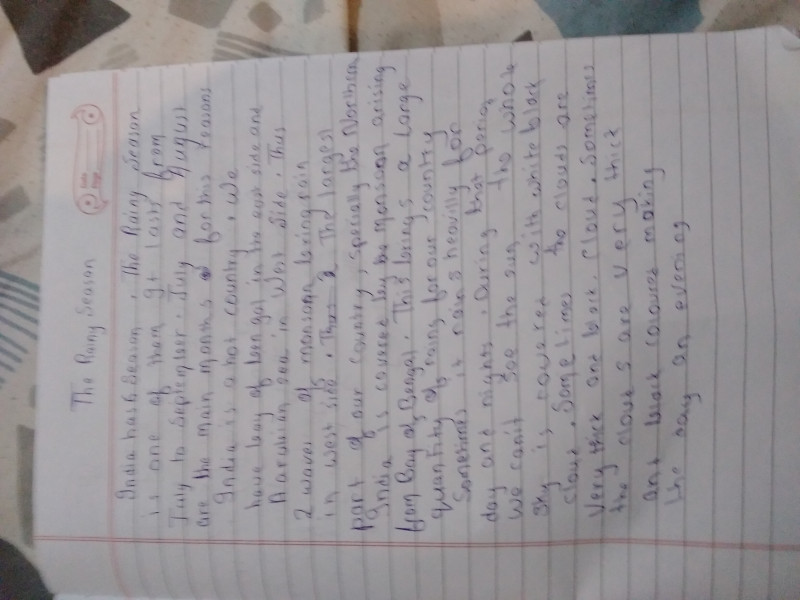 The Rainy Season
India has 6 season. The Rainy Season
is one of them. It lasts from
July to September. July and August
are the main months of for this reasons
India is a hot country. We
have bay of bengal in the east side and
Aarabian sea in West side. Thus
2 waves of monsoon bring rain
in west side. The largest
part of our country, specially the Northern
India is covered by the monsoon arising
from Bay of Bengal. This brings a large
quantity of rains for our country
Sometimes it rains heavilly for
day and nights. During that period
we can't see the sun. The whole
sky is covered with white black
cloud. Sometimes the clouds are
Very thick and black. Cloud. Sometimes
the clouds are very thick
and black coloured making
the day an evening